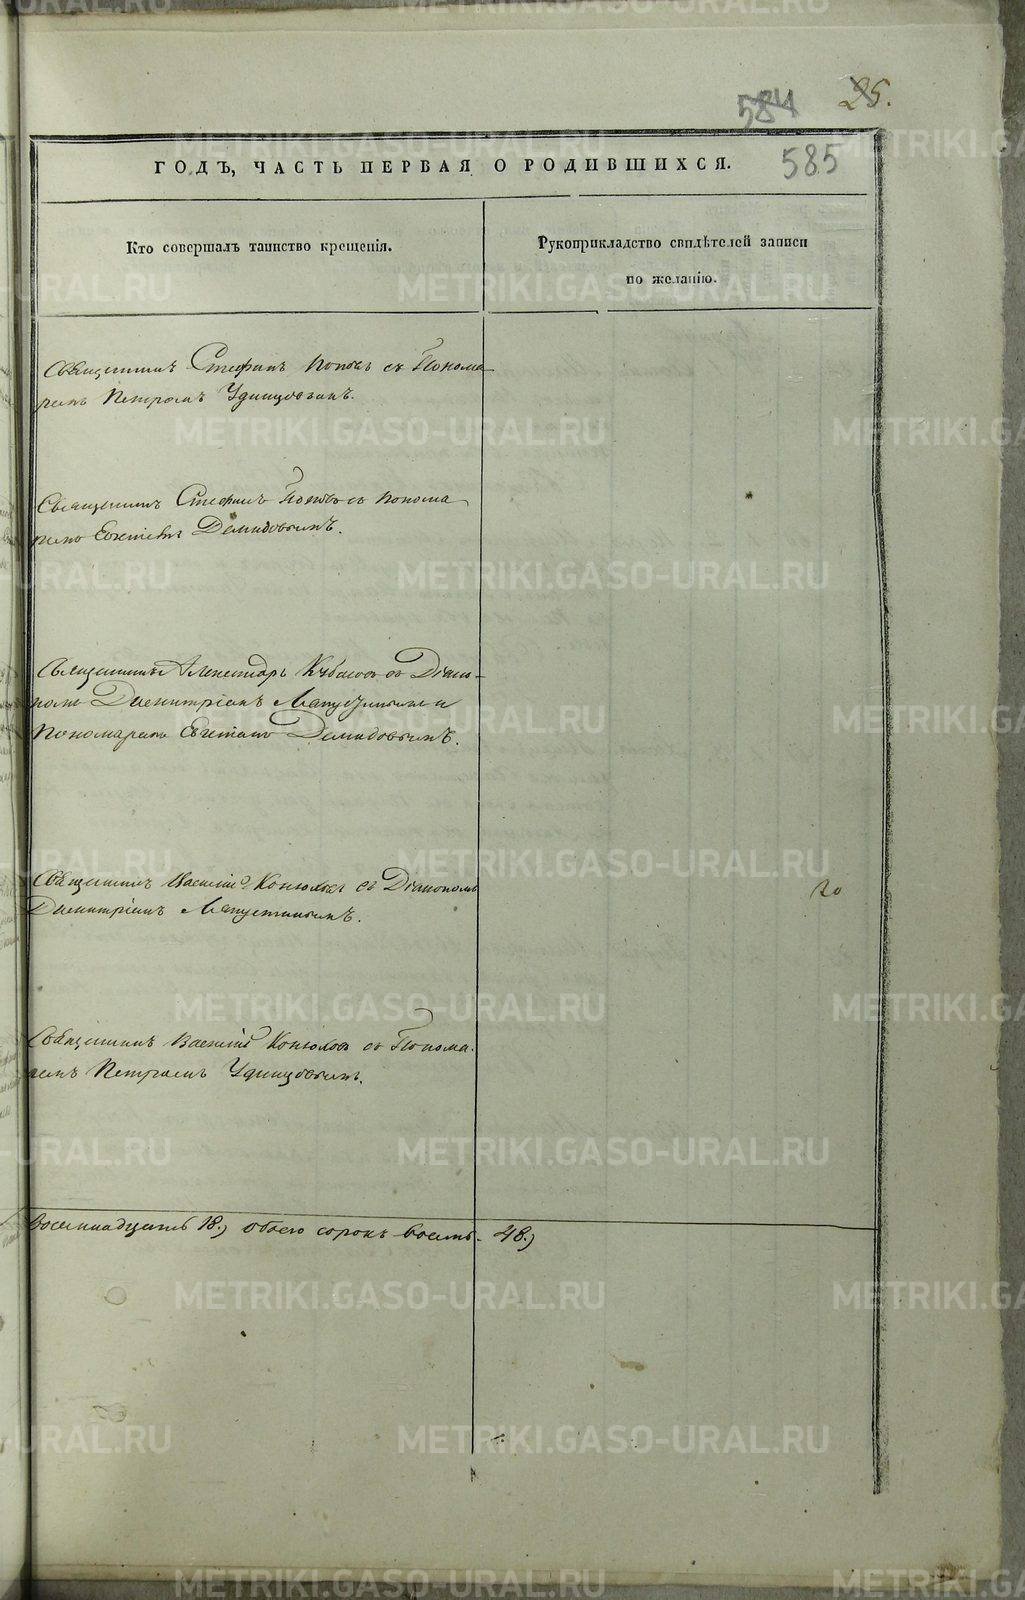 584 25.
585
ГОДЪ, ЧАСТЬ ПЕРВАЯ О РОДИВШИХСЯ.
Кто совершалъ таинство крещенія.
Рукоприкладство свидѣтелей записи
по желанію.
Священникъ Стефанъ Поповъ съ Понома-
ремъ Петромъ Удинцовымъ.
Священникъ Стефанъ Поповъ съ Понома
ремъ Демидовымъ.
Священникъ Александръ съ Діако-
номъ Димитріемъ и
Пономаремъ Демидовымъ.
Священникъ Василій Конюховъ съ Діакономъ
Димитріемъ
20
Священникъ Василій Конюховъ съ Понома-
ремъ Петромъ Удинцовымъ.
восемнадцать 18.) обоего сорокъ восемь. 48.)
METRIKI.GASO-URAL.RU